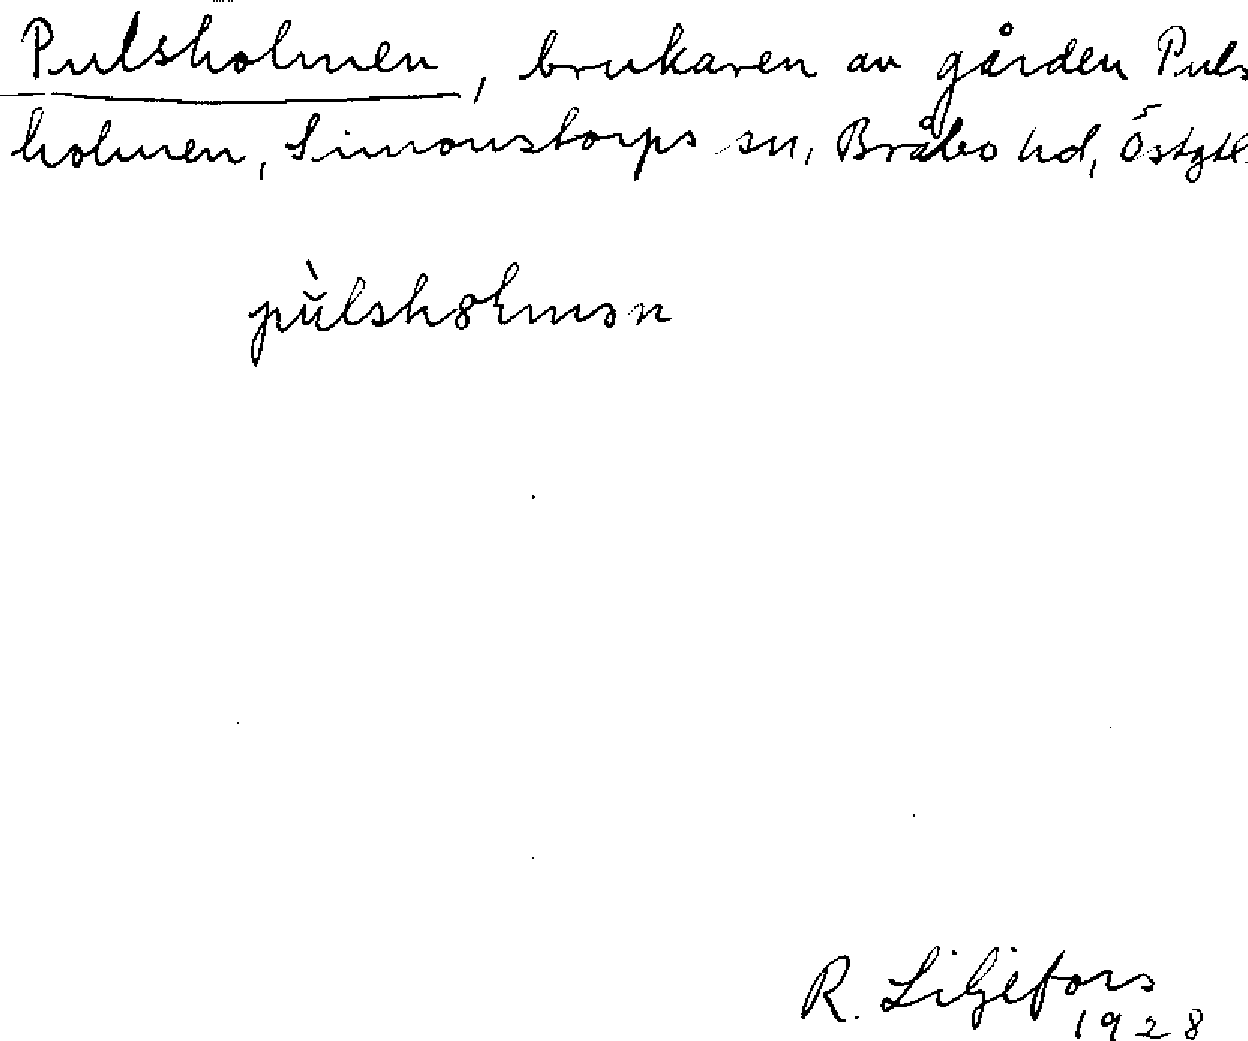 Pulsholmen, brukaren av gården Puls
holmen, Simonstorps sn, Bråbo hd, Östgtl
pùlshɷlmən
R. Liljefors
1928